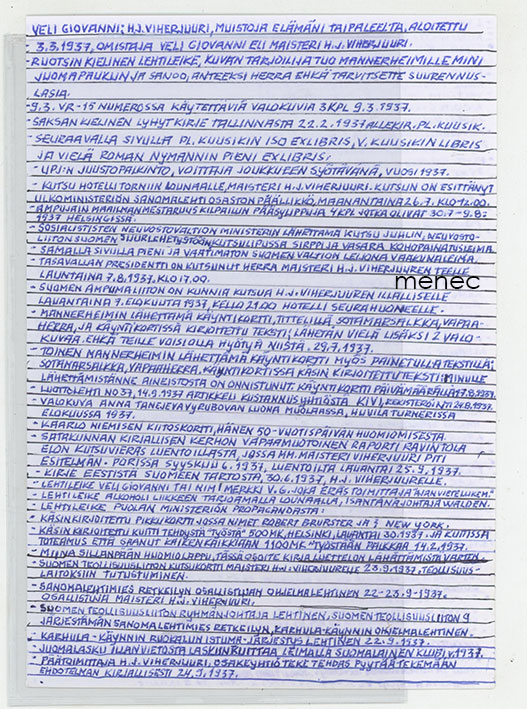 VELI GIOVANNI; H.J. VIHERJUURI, MUISTOJA ELÄMÄNI TAIPALEELTA, ALOITETTU
- 3.3.1937, OMISTAJA VELI GIOVANNI ELI MAISTERI H.J. VIHERJUURI.
- RUOTSIN KIELINEN LEHTILEIKE, KUVAN TARJOILIJA TUO MANNERHEIMILLE MINI
JUOMAPAUKUN JA SANOO, ANTEEKSI HERRA EHKÄ TARVITSETTE SUURENNUS-
LASIA.
- 9.3. VR - 15 NUMEROSSA KÄYTETTÄVIÄ VALOKUVIA 3 KPL 9.3.1937.
- SAKSAN KIELINEN LYHYT KIRJE TALLINNASTA 22.2.1937 ALLEKIR. PL. KUUSIK.
- SEURAAVALLA SIVULLA PL. KUUSIKIN ISO EXLIBRIS, V. KUUSIKIN LIBRIS
JA VIELÄ ROMAN NYMANNIN PIENI EXLIBRIS.
- UPJ:N JUUSTOPALKINTO, VOITTAJA JOUKKUEEN SYÖTÄVÄNÄ, VUOSI 1937.
- KUTSU HOTELLI TORNIIN LOUNAALLE, MAISTERI H.J. VIHERJUURI. KUTSUN ON ESITTÄNYT
ULKOMINISTERIÖN SANOMALEHTIOSASTON PÄÄLLIKKÖ, MAANANTAINA 26.7. KLO 12.00.
- AMPUJAIN MAAILMANMESTARUUSKILPAILUN PÄÄSYLIPPUJA 4 KPL JOTKA OLIVAT 30.7-9.8.
1937 HELSINGISSÄ.
- SOSIALISTISTEN NEUVOSTOVALTION MINISTERIN LÄHETTÄMÄ KUTSU JUHLIIN, NEUVOSTO-
LIITON SUOMEN SUURLEHETYSTÖÖN KUTSULIPUSSA SIRPPI JA VASARA KOHOPAINATUSLEIMA.
- SAMALLA SIVULLA PIENI JA VAATIMATON SUOMEN VALTION LEIJONA VAAKUNALEIMA.
- TASAVALLAN PRESIDENTTI ON KUTSUNUT HERRA MAISTERI H.J. VIHERJUUREN TEELLE
LAUANTAINA 7.8.1937, KLO 17.00.
menec
- SUOMEN AMPUMALIITON ON KUNNIA KUTSUA H.J. VIHERJUUREN ILLALLISELLE
LAUANTAINA 7. ELOKUUTA 1937, KELLO 21.00 HOTELLI SEURAHUONEELLE.
- MANNERHEIMIN LÄHETTÄMÄ KÄYNTIKORTTI, TITTELILLÄ, SOTAMARSALKKA, VAPAA-
HERRA, JA KÄYNTIKORTISSA KIRJOITETTU TEKSTI; LÄHETÄN VIELÄ LISÄKSI 2 VALO-
KUVAA. EHKÄ TEILLE VOISI OLLA HYÖTYÄ NIISTÄ. 29.7.1937.
- TOINEN MANNERHEIMIN LÄHETTÄMÄ KÄYNTIKORTTI MYÖS PAINETULLA TEKSTILLÄ;
SOTAMARSALKKA, VAPAAHERRA, KÄYNTIKORTISSA KÄSIN KIRJOITETTU TEKSTI; MINULLE
LÄHETTÄMISTÄNNE AINEISTOSTA ON ONNISTUNUT. KÄYNTIKORTTI PÄIVÄMÄÄRÄLLÄ 17.8.1937.
- LUOTOLEHTI NO 37, 14.9.1937 ARTIKKELI KUSTANNUSYHTIÖSTÄ KIVI, REKISTERÖINTI 24.8.1937.
- VALOKUVA ANNA TANEJEVA VYRUBOVAN LUONA MUOLAASSA, HUVILA TURNERISSA
ELOKUUSSA 1937.
- KAARLO NIEMISEN KIITOSKORTTI, HÄNEN 50-VUOTISPÄIVÄN HUOMIOIMISESTA.
- SATAKUNNAN KIRJALLISEN KERHON VAPAAMUOTOINEN RAPORTTI RAVINTOLA
ELON KUTSUVIERAS LUENTOILLASTA, JOSSA HM. MAISTERI VIHERJUURI PITI
ESITELMÄN. PORISSA SYYSKUU 6. 1937, LUENTOILTA LAUANTAI 25.9.1937.
- KIRJE EESTISTÄ SUOMEEN TARTOSTA, 30.6.1937, H.J. VIHERJUURELLE.
- LEHTILEIKE VELI GIOVANNI TAI NIMIMERKKI V.G. JOKA ERÄS TOIMITTAJA "AJAN VIETELUKEM."
- LEHTILEIKE ALKOHOLILIIKKEEN TARJOAMALLA LOUNAALLA, ISÄNTÄNÄ JOHTAJA WALDEN.
- LEHTILEIKE PUOLAN MINISTERIÖN PROPAGANDASTA:
- KÄSINKIRJOITETTU PIKKUKORTTI JOSSA NIMET ROBERT BRURSTER JA; NEW YORK.
- KÄSIN KIRJOITETTU KUITTI TEHDYSTÄ "TYÖSTÄ" 500MK, HELSINKI, LAUANTAI 30.1937. JA KUITISSA
TOTEAMUS ETTÄ SAANUT KAIKEN KAIKKIAAN 1100MK "TYÖSTÄÄN PALKKAA 14.2.1937.
- MIINA SILLANPÄÄN HUOMIOLAPPU, TÄSSÄ OSOITE KIRJALUETTELON LÄHETTÄMISTÄ VARTEN.
- SUOMEN TEOLLISUUSLIITON KUTSUKORTTI MAISTERI H.J. VIHERJUURELLE 23.9.1937, TEOLLISUUS-
LAITOKSIIN TUTUSTUMINEN.
- SANOMALEHTIMIES RETKEILYN OSALLISTUJAN OHJELMALEHTINEN 22-23.9.1937.
OSALLISTUJA MAISTERI H.J. VIHERJUURI.
- SUOMEN TEOLLISUUSLIITON RYHMÄN JOHTAJA LEHTINEN, SUOMEN TEOLLISUUSLIITON
JÄRJESTÄMÄN SANOMALEHTIMIES RETKEILYN, KARHULA-KÄYNNIN OHJELMALEHTINEN.
- KARHULA-KÄYNNIN RUOKAILUN ISTUMA-JÄRJESTYS LEHTINEN 22.9.1937.
- JUOMALASKU ILLANVIETOSTA LASKUN KUITTAA LEIMALLA SUOMALAINEN KLUBI, V. 1937.
- PÄÄTOIMITTAJA H.J. VIHERJUURI, OSAKEYHTIÖ TEKETEHDAS PYYTÄÄ TEKEMÄÄN
EHDOTELMAN KIRJALLISESTI 24.9.1937.